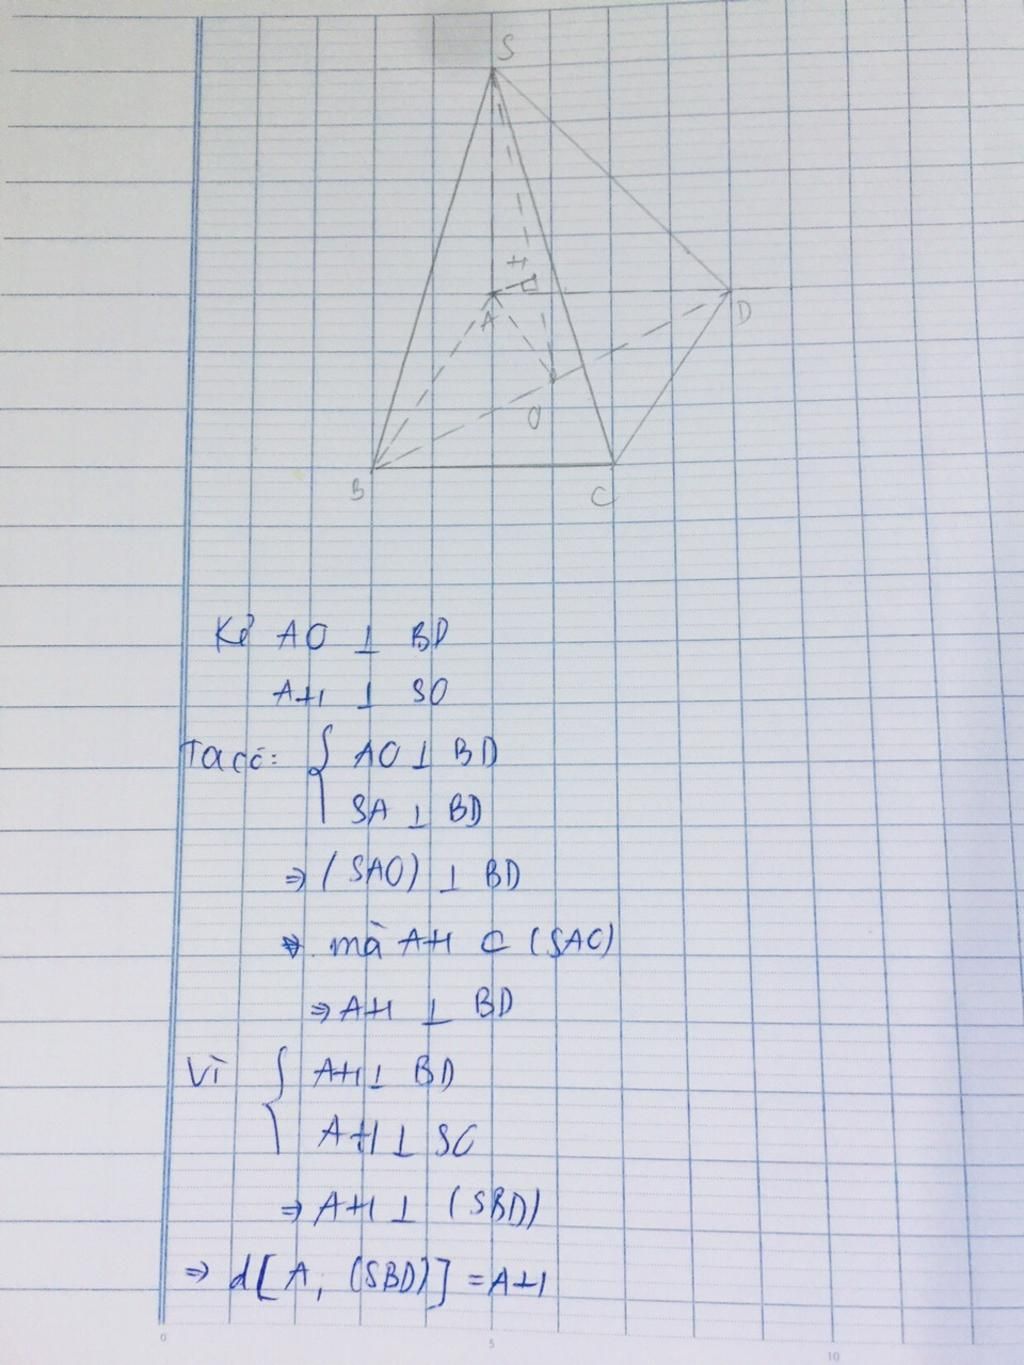 S
H
A
D
O
B
C
Kẻ AO ⊥ BD
AH ⊥ SO
Ta có: { AO ⊥ BD
SA ⊥ BD
⇒ (SAO) ⊥ BD
mà AH ⊂ (SAO)
⇒ AH ⊥ BD
Vì { AH ⊥ BD
AH ⊥ SO
⇒ AH ⊥ (SBD)
⇒ d[A, (SBD)] = AH
0 5 10